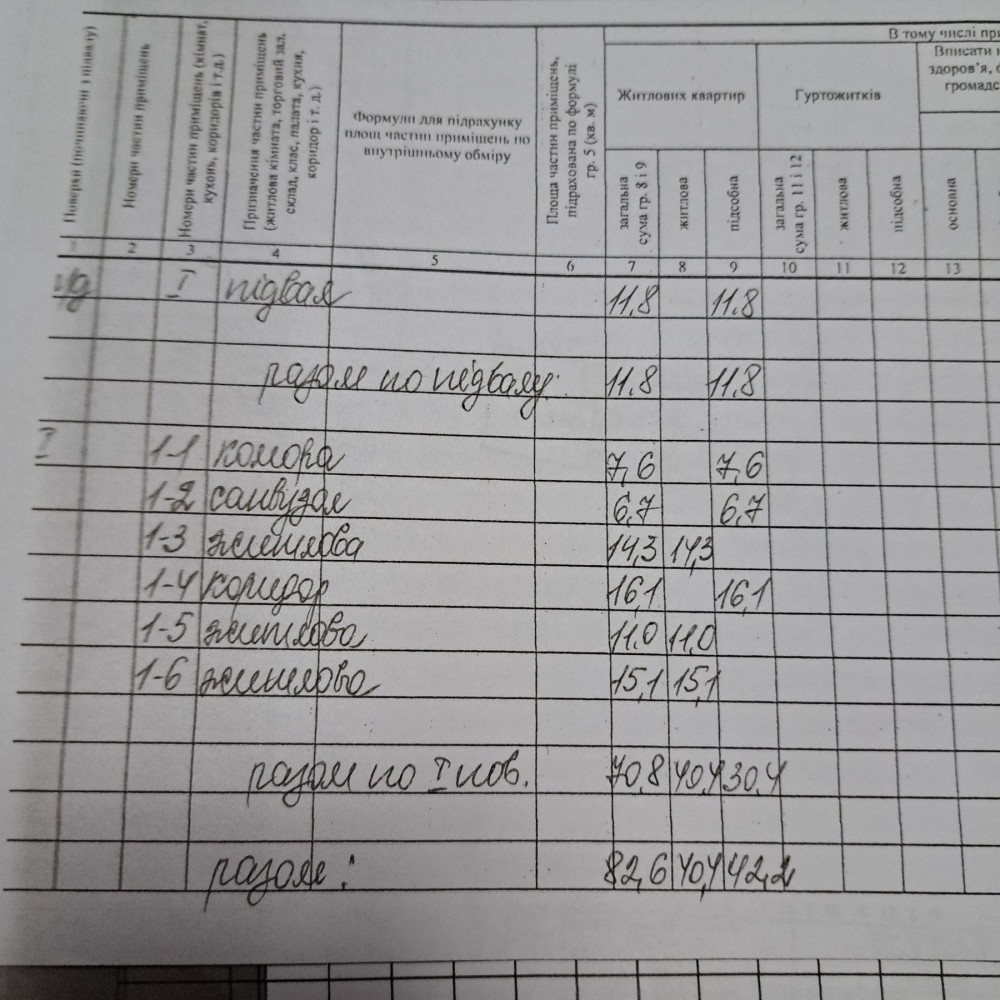 В тому числі
Житлових квартир
Гуртожитків
Вписати
здоров'я,
громадс
Поверхи (починаючи з підвалу)
Номери частин приміщень
Номери частин приміщень (кімнат,
кухонь, коридорів і т.д.)
Призначення частин приміщень
(житлова кімната, торговий зал,
склад, клас, палата, кухня,
коридор і т. д.)
Формули для підрахунку
площ частин приміщень по
внутрішньому обміру
Площа частин приміщень,
підрахована по формулі
гр. 5 (кв. м)
загальна
сума гр. 8 і 9
житлова
підсобна
загальна
сума гр. 11 і 12
житлова
підсобна
основна
1 2 3 4 5 6 7 8 9 10 11 12 13
I підвал 11.8 11.8
разом по підвалу: 11.8 11.8
I 1-1 комора 7,6 7,6
1-2 санвузол 6,7 6,7
1-3 житлова 14,3 14,3
1-4 коридор 16,1 16,1
1-5 житлова 11.0 11,0
1-6 житлова 15,1 15,1
разом по I пов. 70,8 40,4 30,4
разом: 82,6 40,4 42,2